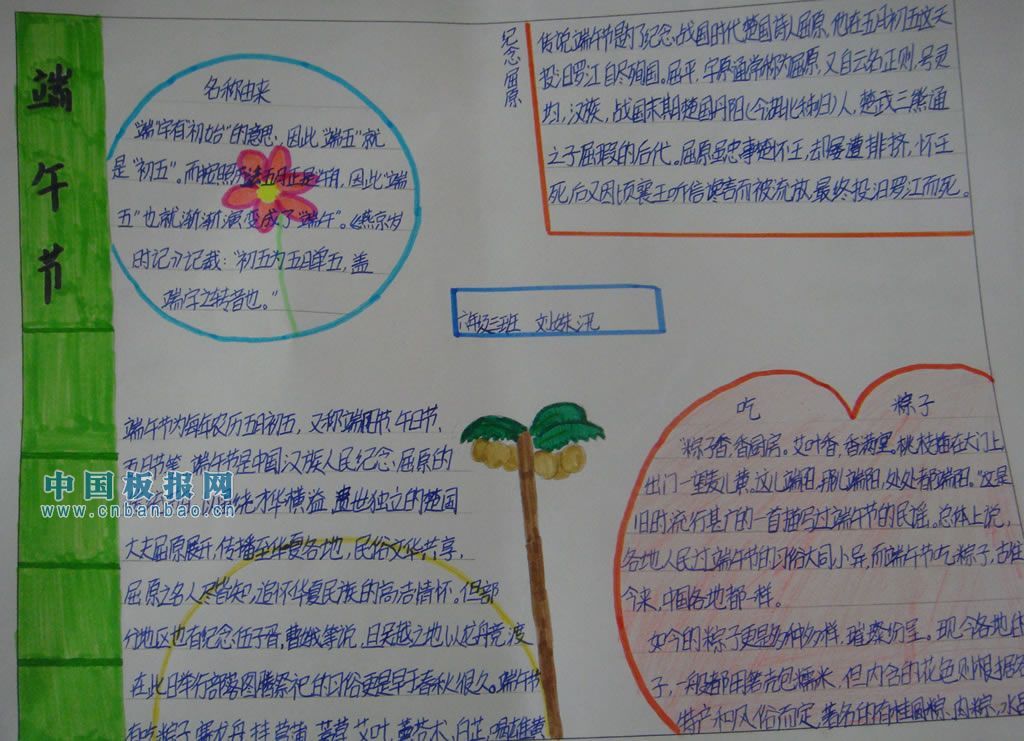 端午节
名称由来
"端"字有"初始"的意思，因此"端五"就
是"初五"。而按照历法五月正是午月，因此"端
五"也就渐渐演变成了"端午"。《燕京岁
时记》记载："初五为五月单五，盖
端字之转音也。"
纪念屈原
传说，端午节是为了纪念战国时代楚国诗人屈原，他在五月初五这天
投汨罗江自尽殉国。屈平，字原通常称为屈原，又自云名正则，号灵
均，汉族，战国末期楚国丹阳（今湖北秭归）人，楚武王熊通
之子屈瑕的后代。屈原虽忠事楚怀王，却屡遭排挤，怀王
死后又因顷襄王听信谗言而被流放，最终投汨罗江而死。
六年级三班 刘姝汛
端午节为每年农历五月初五，又称端阳节、午日节、
五月节等。端午节是中国汉族人民纪念屈原的
才华横益、遗世独立的楚国
大夫屈原展开，传播至华夏各地，民俗文华共享，
屈原之名人尽皆知，追怀华夏民族的高洁情怀。但部
分地区也有纪念伍子胥、曹娥等说，且吴越之地以龙舟竞渡
在此日举行部落图腾祭祀的习俗更是早于春秋很久。端午节
有吃粽子，赛龙舟，挂菖蒲、蒿草、艾叶，薰苍术、白芷，喝雄黄
中国板报网
www.cnbanbao.cn
吃 粽子
"粽子香，香厨房。艾叶香，香满堂。桃枝插在大门上，
出门一望麦儿黄。这儿端阳，那儿端阳，处处都端阳。"这是
旧时流行甚广的一首描写过端午节的民谣。总体上说，
各地人民过端午节的习俗大同小异，而端午节吃粽子，古往
今来，中国各地都一样。
如今的粽子更是多种多样，璀璨纷呈。现今各地的
子，一般都用箬壳包糯米，但内含的花色则根据各
特产和风俗而定，著名的有桂圆粽、肉粽、水晶